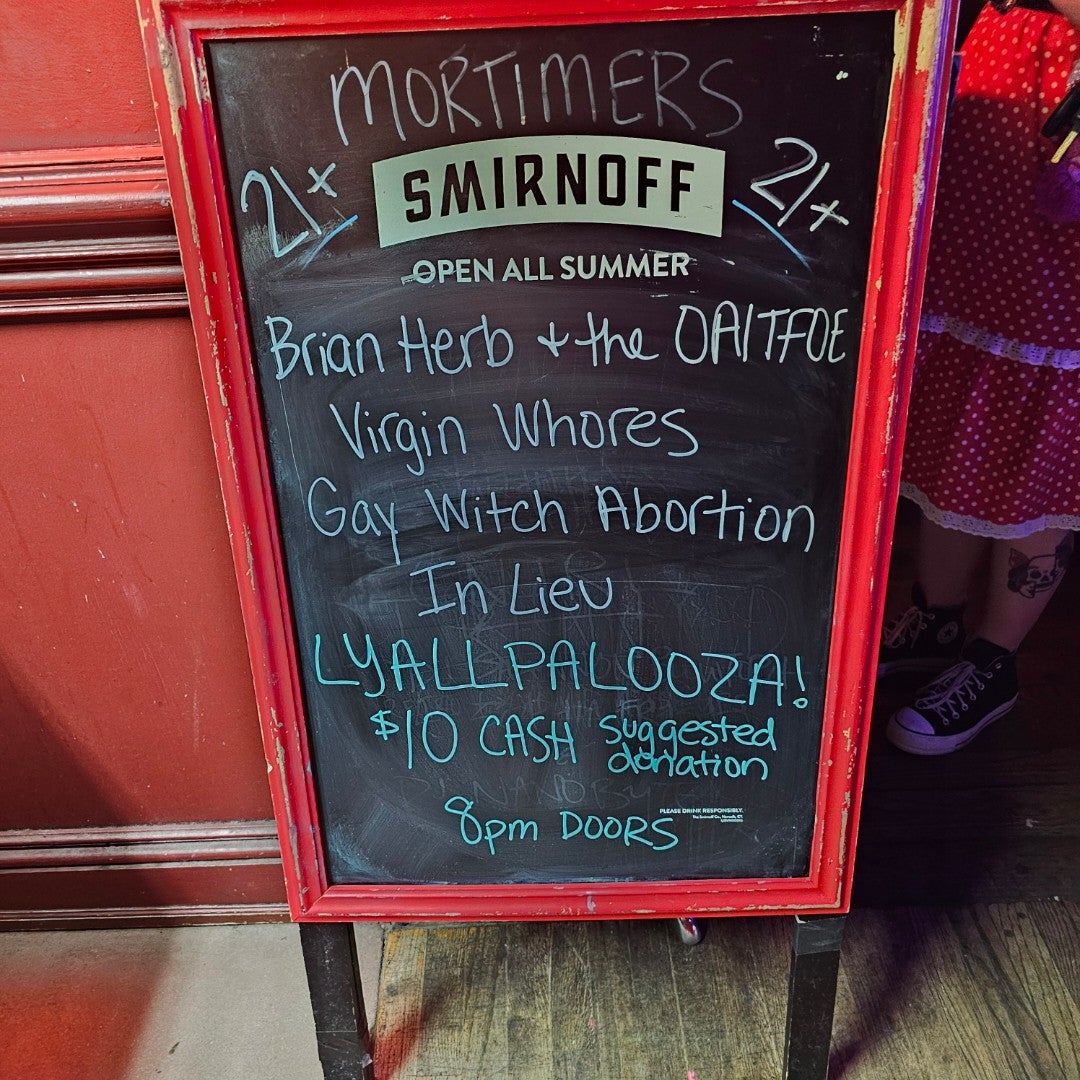 MORTIMERS
21+ SMIRNOFF 21+
OPEN ALL SUMMER
Brian Herb + the OAITFOE
Virgin Whores
Gay Witch Abortion
In Lieu
LYALLPALOOZA!
$10 CASH suggested
donation
PLEASE DRINK RESPONSIBLY.
8pm DOORS